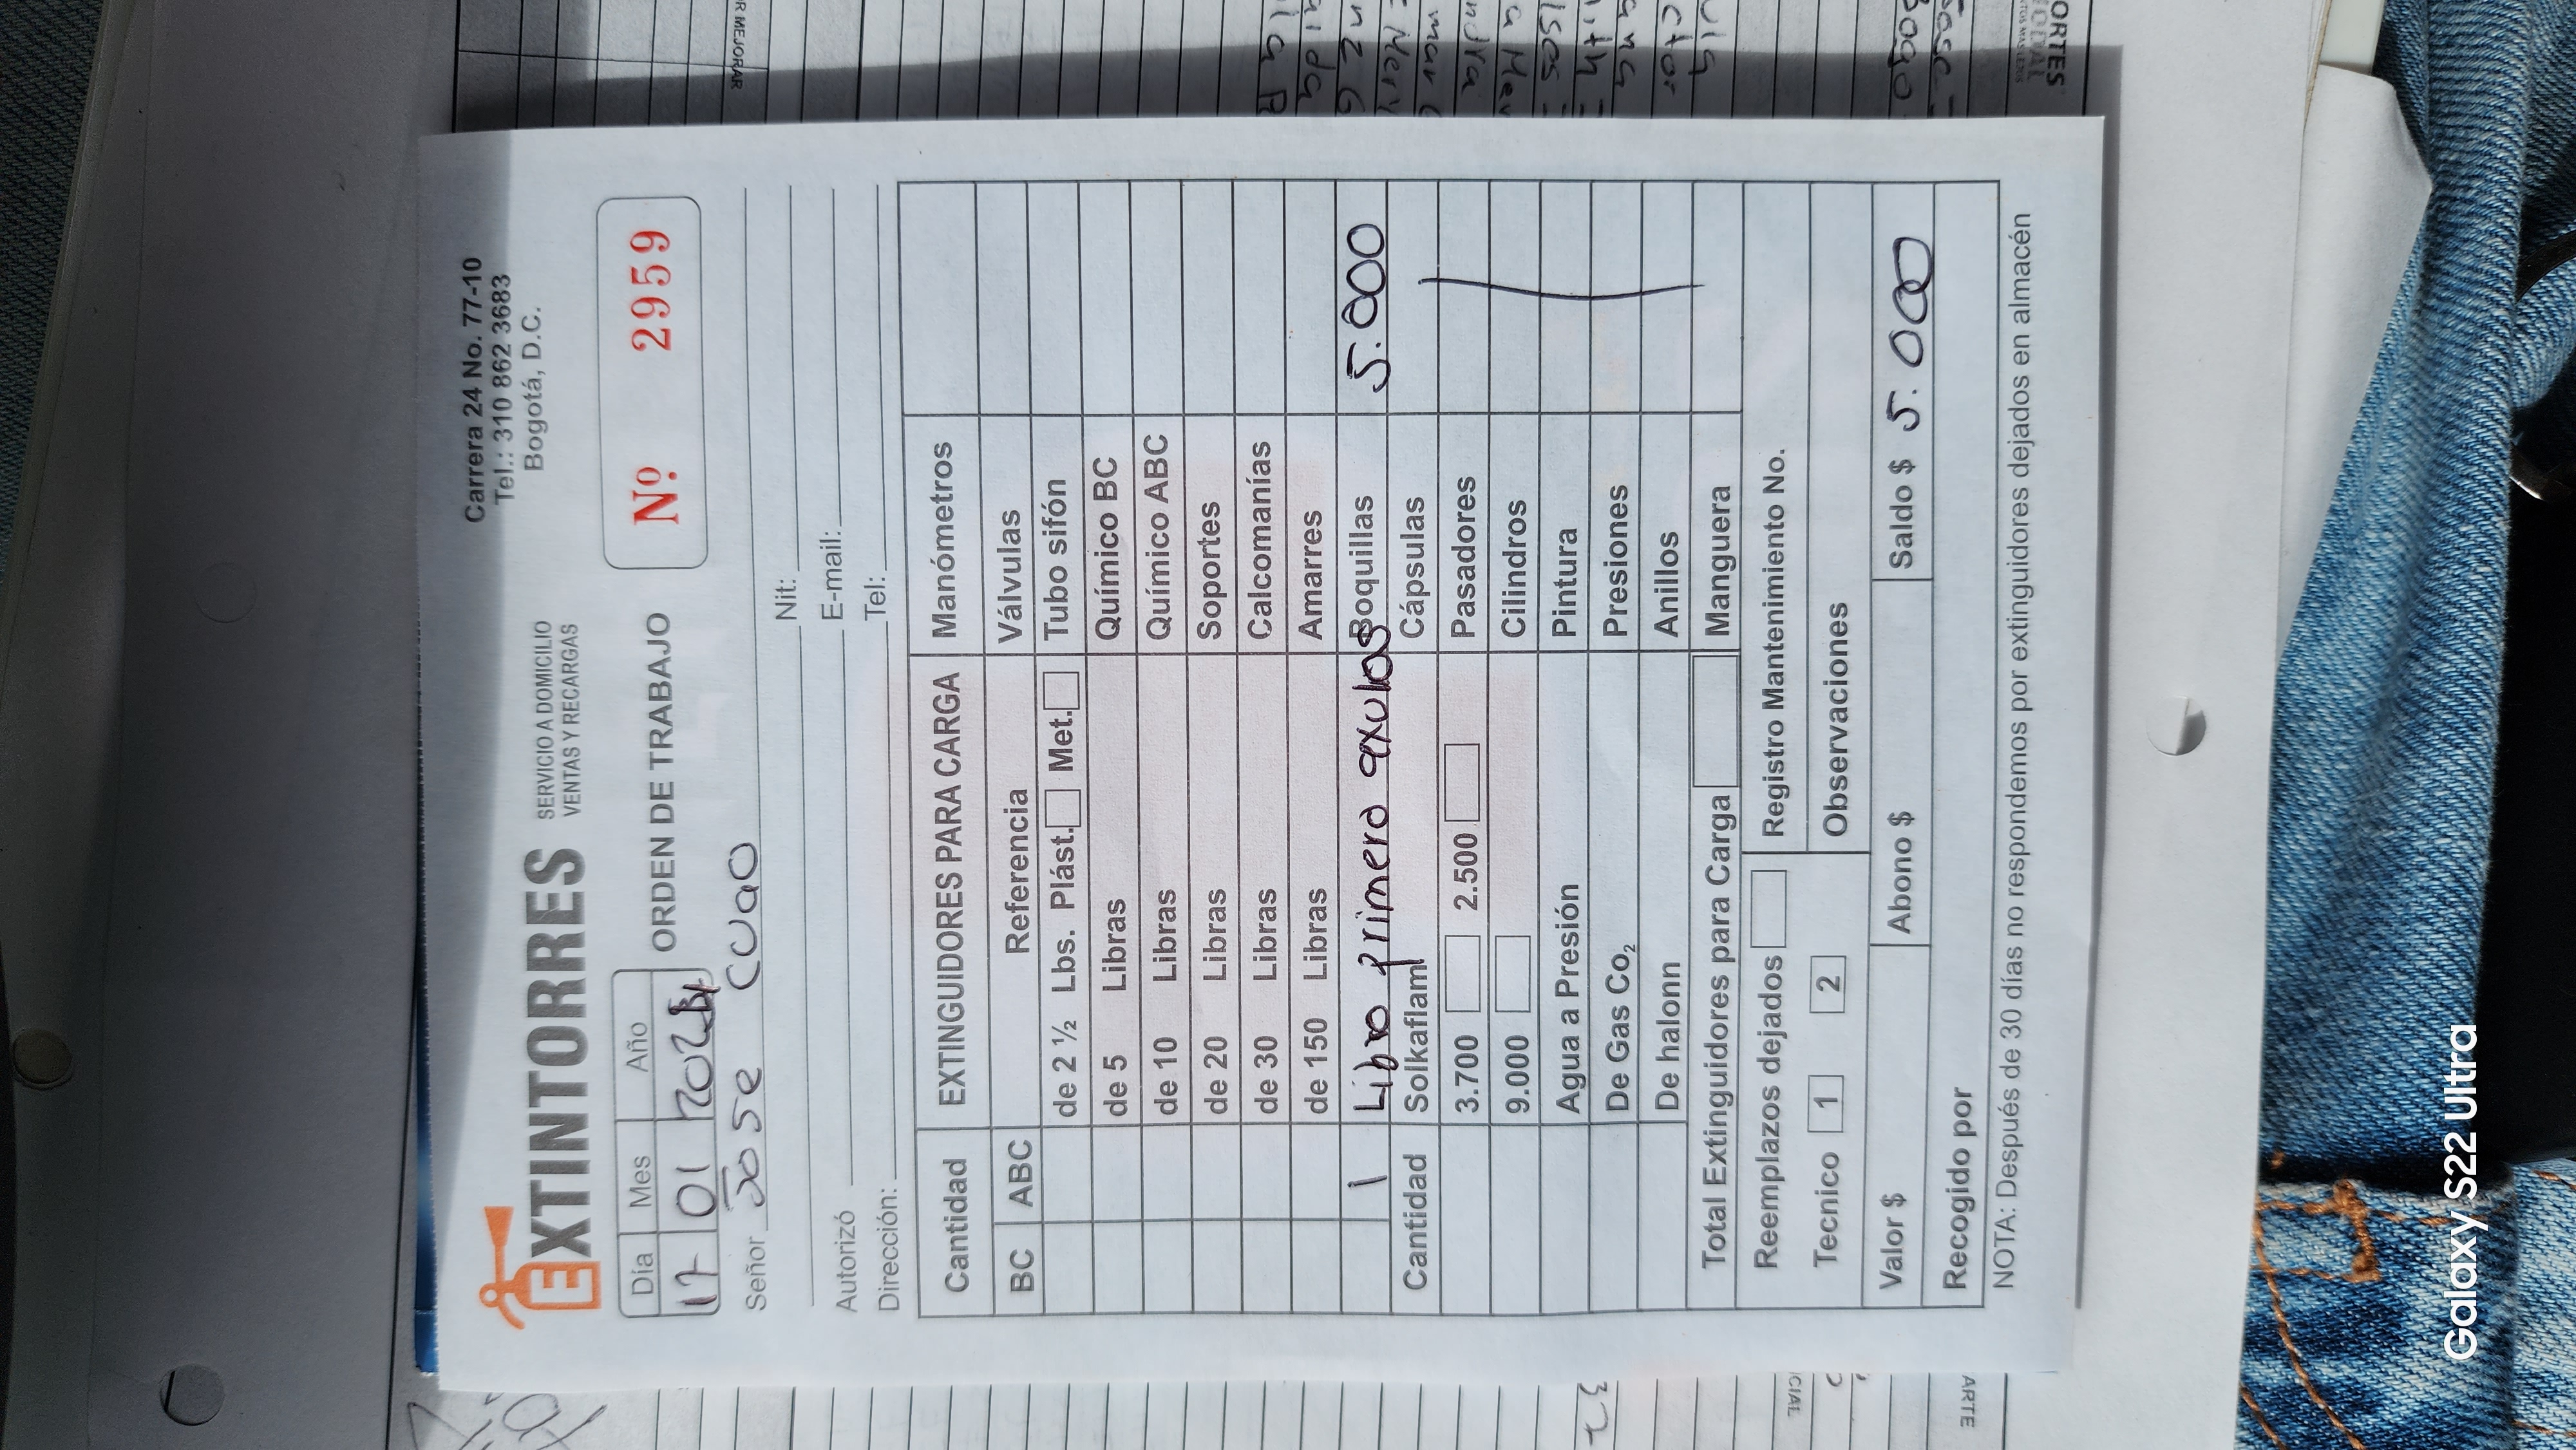 EXTINTORRES
SERVICIO A DOMICILIO
VENTAS Y RECARGAS
Carrera 24 No. 77-10
Tel.: 310 862 3683
Bogotá, D.C.
Día Mes Año
17 01
ORDEN DE TRABAJO
Nº. 2959
Señor Jose Cuao
Nit:
Autorizó E-mail:
Dirección: Tel:
Cantidad EXTINGUIDORES PARA CARGA Manómetros
BC ABC Referencia Válvulas
de 2 ½ Lbs. Plást. Met. Tubo sifón
de 5 Libras Químico BC
de 10 Libras Químico ABC
de 20 Libras Soportes
de 30 Libras Calcomanías
de 150 Libras Amarres
1 Libro primero Boquillas 5.000
Cantidad Solkaflam Cápsulas
3.700 2.500 Pasadores
9.000 Cilindros
Agua a Presión Pintura
De Gas Co₂ Presiones
De halonn Anillos
Total Extinguidores para Carga Manguera
Reemplazos dejados Registro Mantenimiento No.
Tecnico 1 2 Observaciones
Valor $ Abono $ Saldo $ 5.000
Recogido por
NOTA: Después de 30 días no respondemos por extinguidores dejados en almacén
R MEJORAR
ORTES
ARTE
Galaxy S22 Ultra